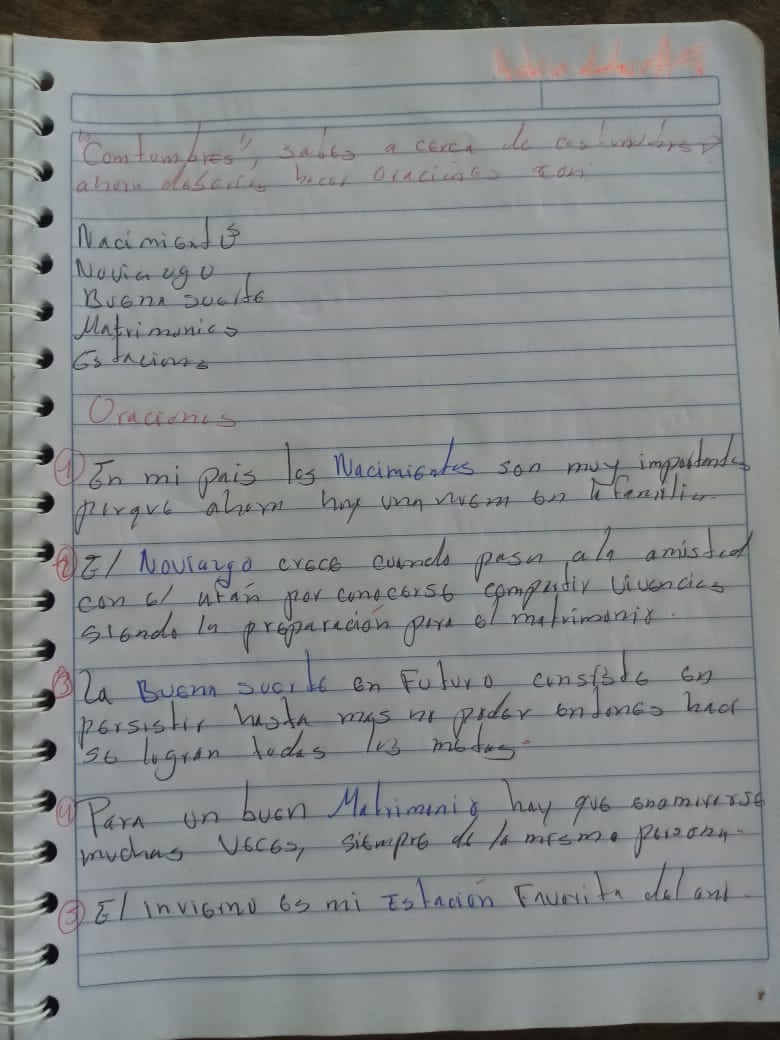 "Comtumbres", sabes a cerca de costumbres
ahora deberás hacer Oraciones con
Nacimientos
Noviazgo
Buena suerte
Matrimonios
Estaciones
Oraciones
1 En mi pais los Nacimientos son muy importantes
porque ahora hay una nueva en la familia.
2 El Noviazgo crece cuando pasa a la amistad
con el afán por conocerse compartir vivencias
siendo la preparación para el matrimonio.
3 La Buena suerte en Futuro consiste en
persistir hasta mas no poder entonces
se logran todas las metas.
4 Para un buen Matrimonio hay que enamorarse
muchas veces, siempre de la misma persona.
5 El invierno es mi Estación Favorita del